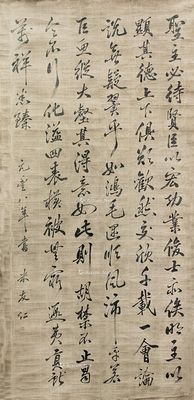 聖主必待賢臣以宏功業俊士亦俟明主以
顯其德上下俱欲歡然交欣千載一會論
說無疑翼乎如鴻毛遇順風沛乎若
巨魚縱大壑其得意如此則胡禁不止曷
令不行化溢四表橫被無窮遐夷貢獻
萬祥必臻 元豐八年書 米友仁